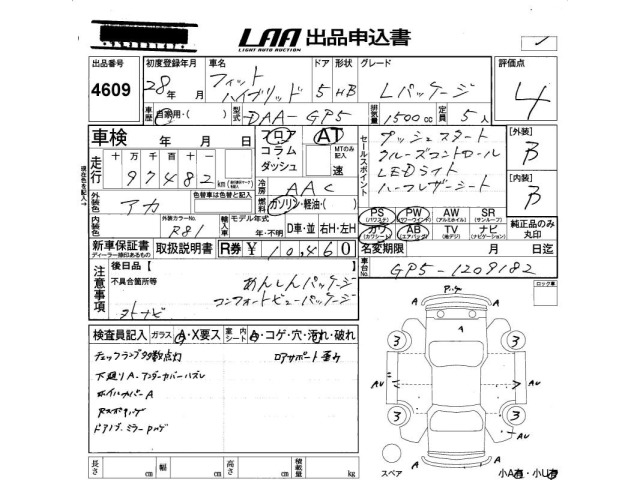 LAA 出品申込書
LIGHT AUTO AUCTION
出品番号 初度登録年月 車名 ドア 形状 グレード 評価点
4609 28年 月 フィット ハイブリッド 5 HB Lパッケージ 4
車歴 自家用・( ) 型式 DAA-GP5 排気量 1500cc 定員 5人
車検 年 月 日 フロア コラム・ダッシュ AT MTのみ記入 速
セールスポイント
プッシュスタート
クルーズコントロール
LEDライト
ハーフレザーシート
[外装] B
[内装] B
走行 十 万 千 百 十 一
97482 km
冷房 AAC
外装色 アカ 色替車は色替と記入
燃料 ガソリン・軽油・( )
内装色 外装カラーNo. R81 輸入車 モデル年式 年・不明 D車・並 右H・左H
PS PW AW SR
(パワステ) (パワーウインド) (アルミホイル) (サンルーフ)
カワ AB TV ナビ
(カワシート) (エアバッグ) (地デジ) (ナビゲーション)
純正品のみ丸印
新車保証書 取扱説明書 R券 ¥10,460
ディーラー捺印あるもの
名変期限 月 日迄
車台No. GP5-1209182
注意事項
後日品【 】
不具合箇所等
あんしんパッケージ
コンフォートビューパッケージ
ロック車
検査員記入 ガラス A・X要ス 室内シート A・コゲ・穴・汚れ・破れ
チェックランプ多数点灯
ロアサポート歪み
下廻りA.アンダーカバーハズレ
ホイルカバーA
3
3
3
3
AU
AU
AU
A
A
A
スペア
小A有・小U有
長さ cm 幅 cm 高さ cm 積載量 kg